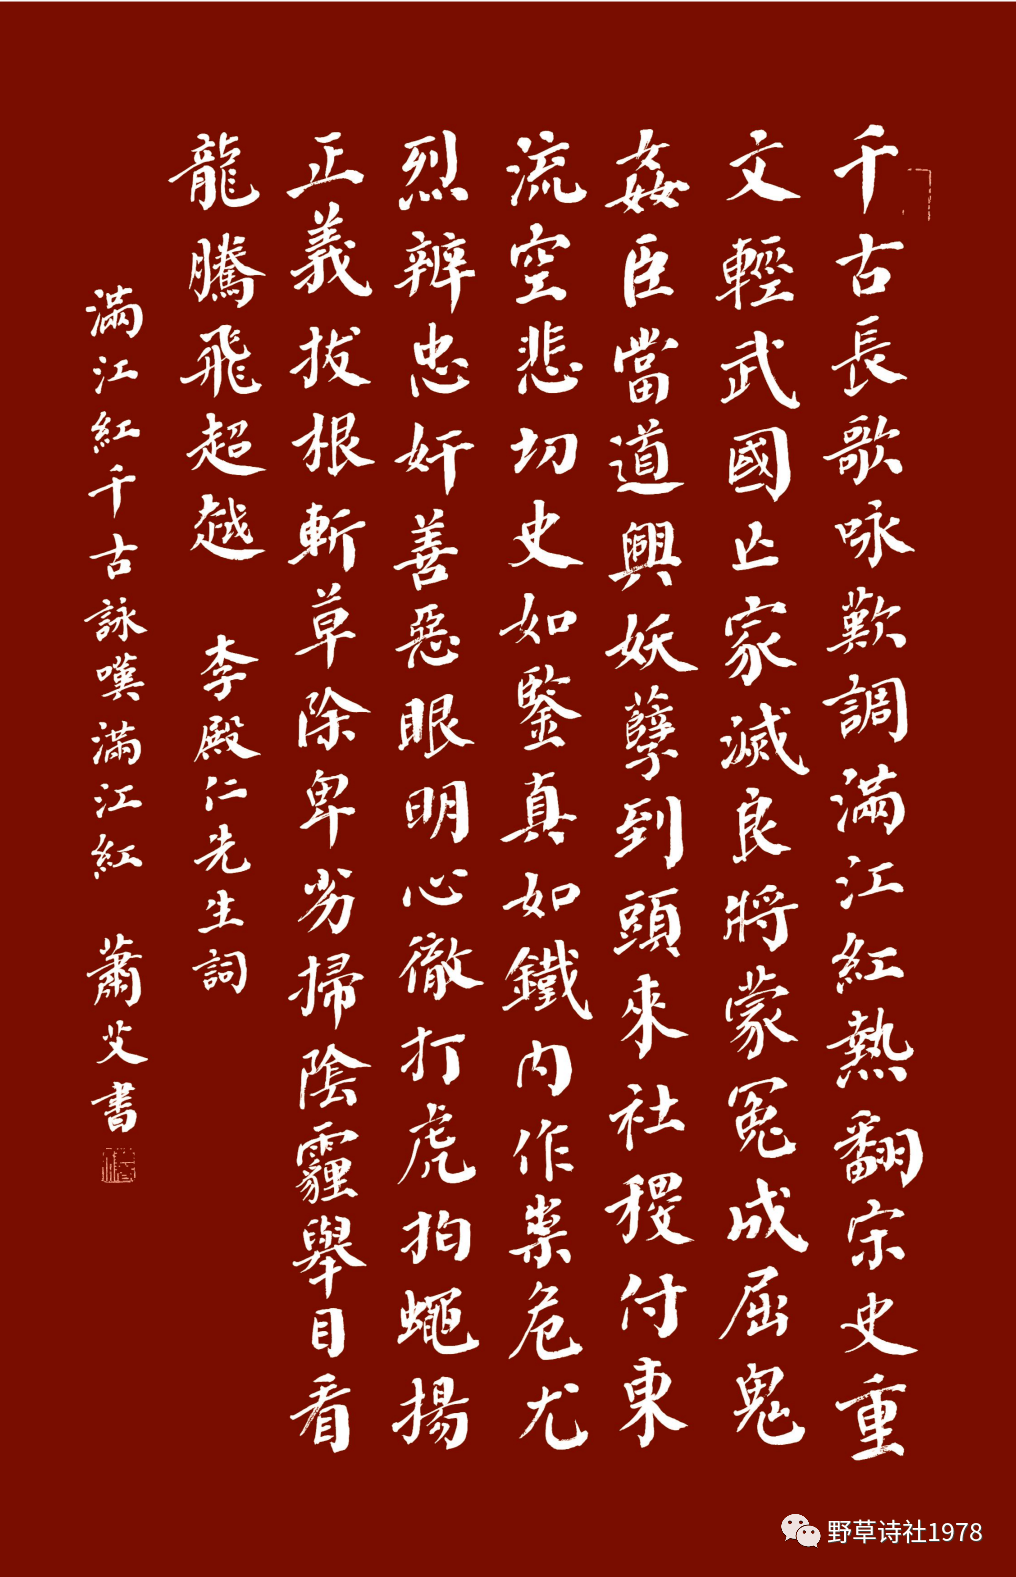 千古長歌咏歎調滿江紅熱翻宗史重
文輕武國亡家滅良將蒙冤成屈鬼
姦臣當道興妖孽到頭來社稷付東
流空悲切史如鑒真如鐵內作祟危尤
烈辨忠奸善惡眼明心徹打虎拍蠅揚
正義拔根斬草除卑劣掃陰霾舉目看
龍騰飛超越 李殿仁先生詞
滿江紅千古詠嘆滿江紅 蕭艾書
野草诗社1978